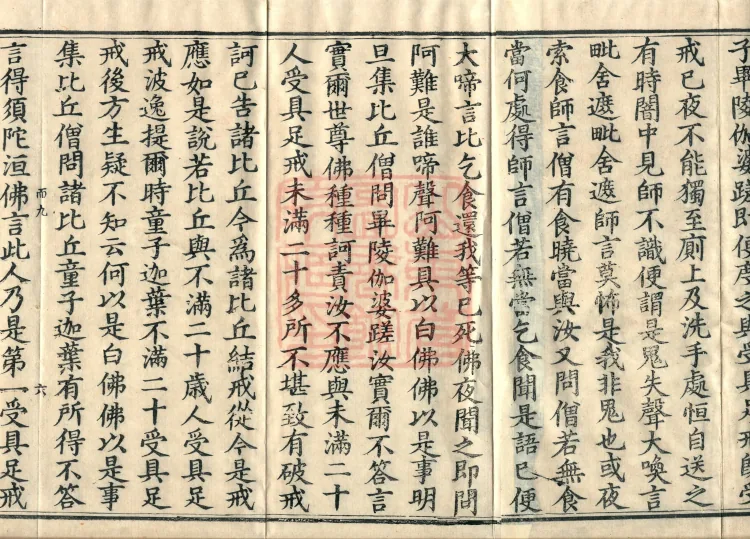 子畢陵伽婆蹉即便度之與受具足戒師常
戒已夜不能獨至廁上及洗手處恒自送之
有時闇中見師不識便謂是鬼失聲大喚言
毗舍遮毗舍遮師言莫怖是我非鬼也或夜
索食師言僧有食曉當與汝又問僧若無食
當何處得師言僧若無當乞食聞是語已便
大啼言比乞食還我等已死佛夜聞之即問
阿難是誰啼聲阿難具以白佛佛以是事明
旦集比丘僧問畢陵伽婆蹉汝實爾不答言
實爾世尊佛種種訶責汝不應與未滿二十
人受具足戒未滿二十多所不堪致有破戒
訶已告諸比丘今為諸比丘結戒從今是戒
應如是說若比丘與不滿二十歲人受具足
戒波逸提爾時童子迦葉不滿二十受具足
戒後方生疑不知云何以是白佛佛以是事
集比丘僧問諸比丘童子迦葉有所得不答
而九
六
言得須陀洹佛言此人乃是第一受具足戒